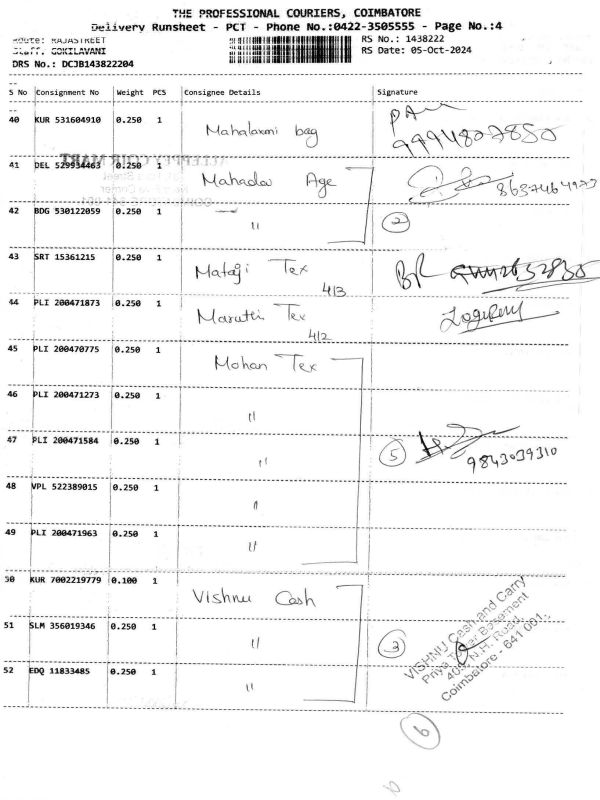 THE PROFESSIONAL COURIERS, COIMBATORE
Delivery Runsheet - PCT - Phone No.:0422-3505555 - Page No.:4
Route: RAJASTREET
RS No.: 1438222
Staff: GOKILAVANI
RS Date: 05-Oct-2024
DRS No.: DCJB143822204
S No Consignment No Weight PCS Consignee Details Signature
40 KUR 531604910 0.250 1 Mahalaxmi bag
9994807850
41 DEL 529934463 0.250 1 Mahadev Age 8637464973
42 BDG 530122059 0.250 1 " 2
43 SRT 15361215 0.250 1 Mataji Tex BR
4/3
44 PLI 200471873 0.250 1 Maruthi Tex
4/2
45 PLI 200470775 0.250 1 Mohan Tex
46 PLI 200471273 0.250 1 "
47 PLI 200471584 0.250 1 " 5 9843039310
48 VPL 522389015 0.250 1 "
49 PLI 200471963 0.250 1 "
50 KUR 7002219779 0.100 1 Vishnu Cash
51 SLM 356019346 0.250 1 " 3
52 EDQ 11833485 0.250 1 "
VISHNU Cash and Carry
Priya Tower Basement
N.H. Road,
Coimbatore - 641 001.
6